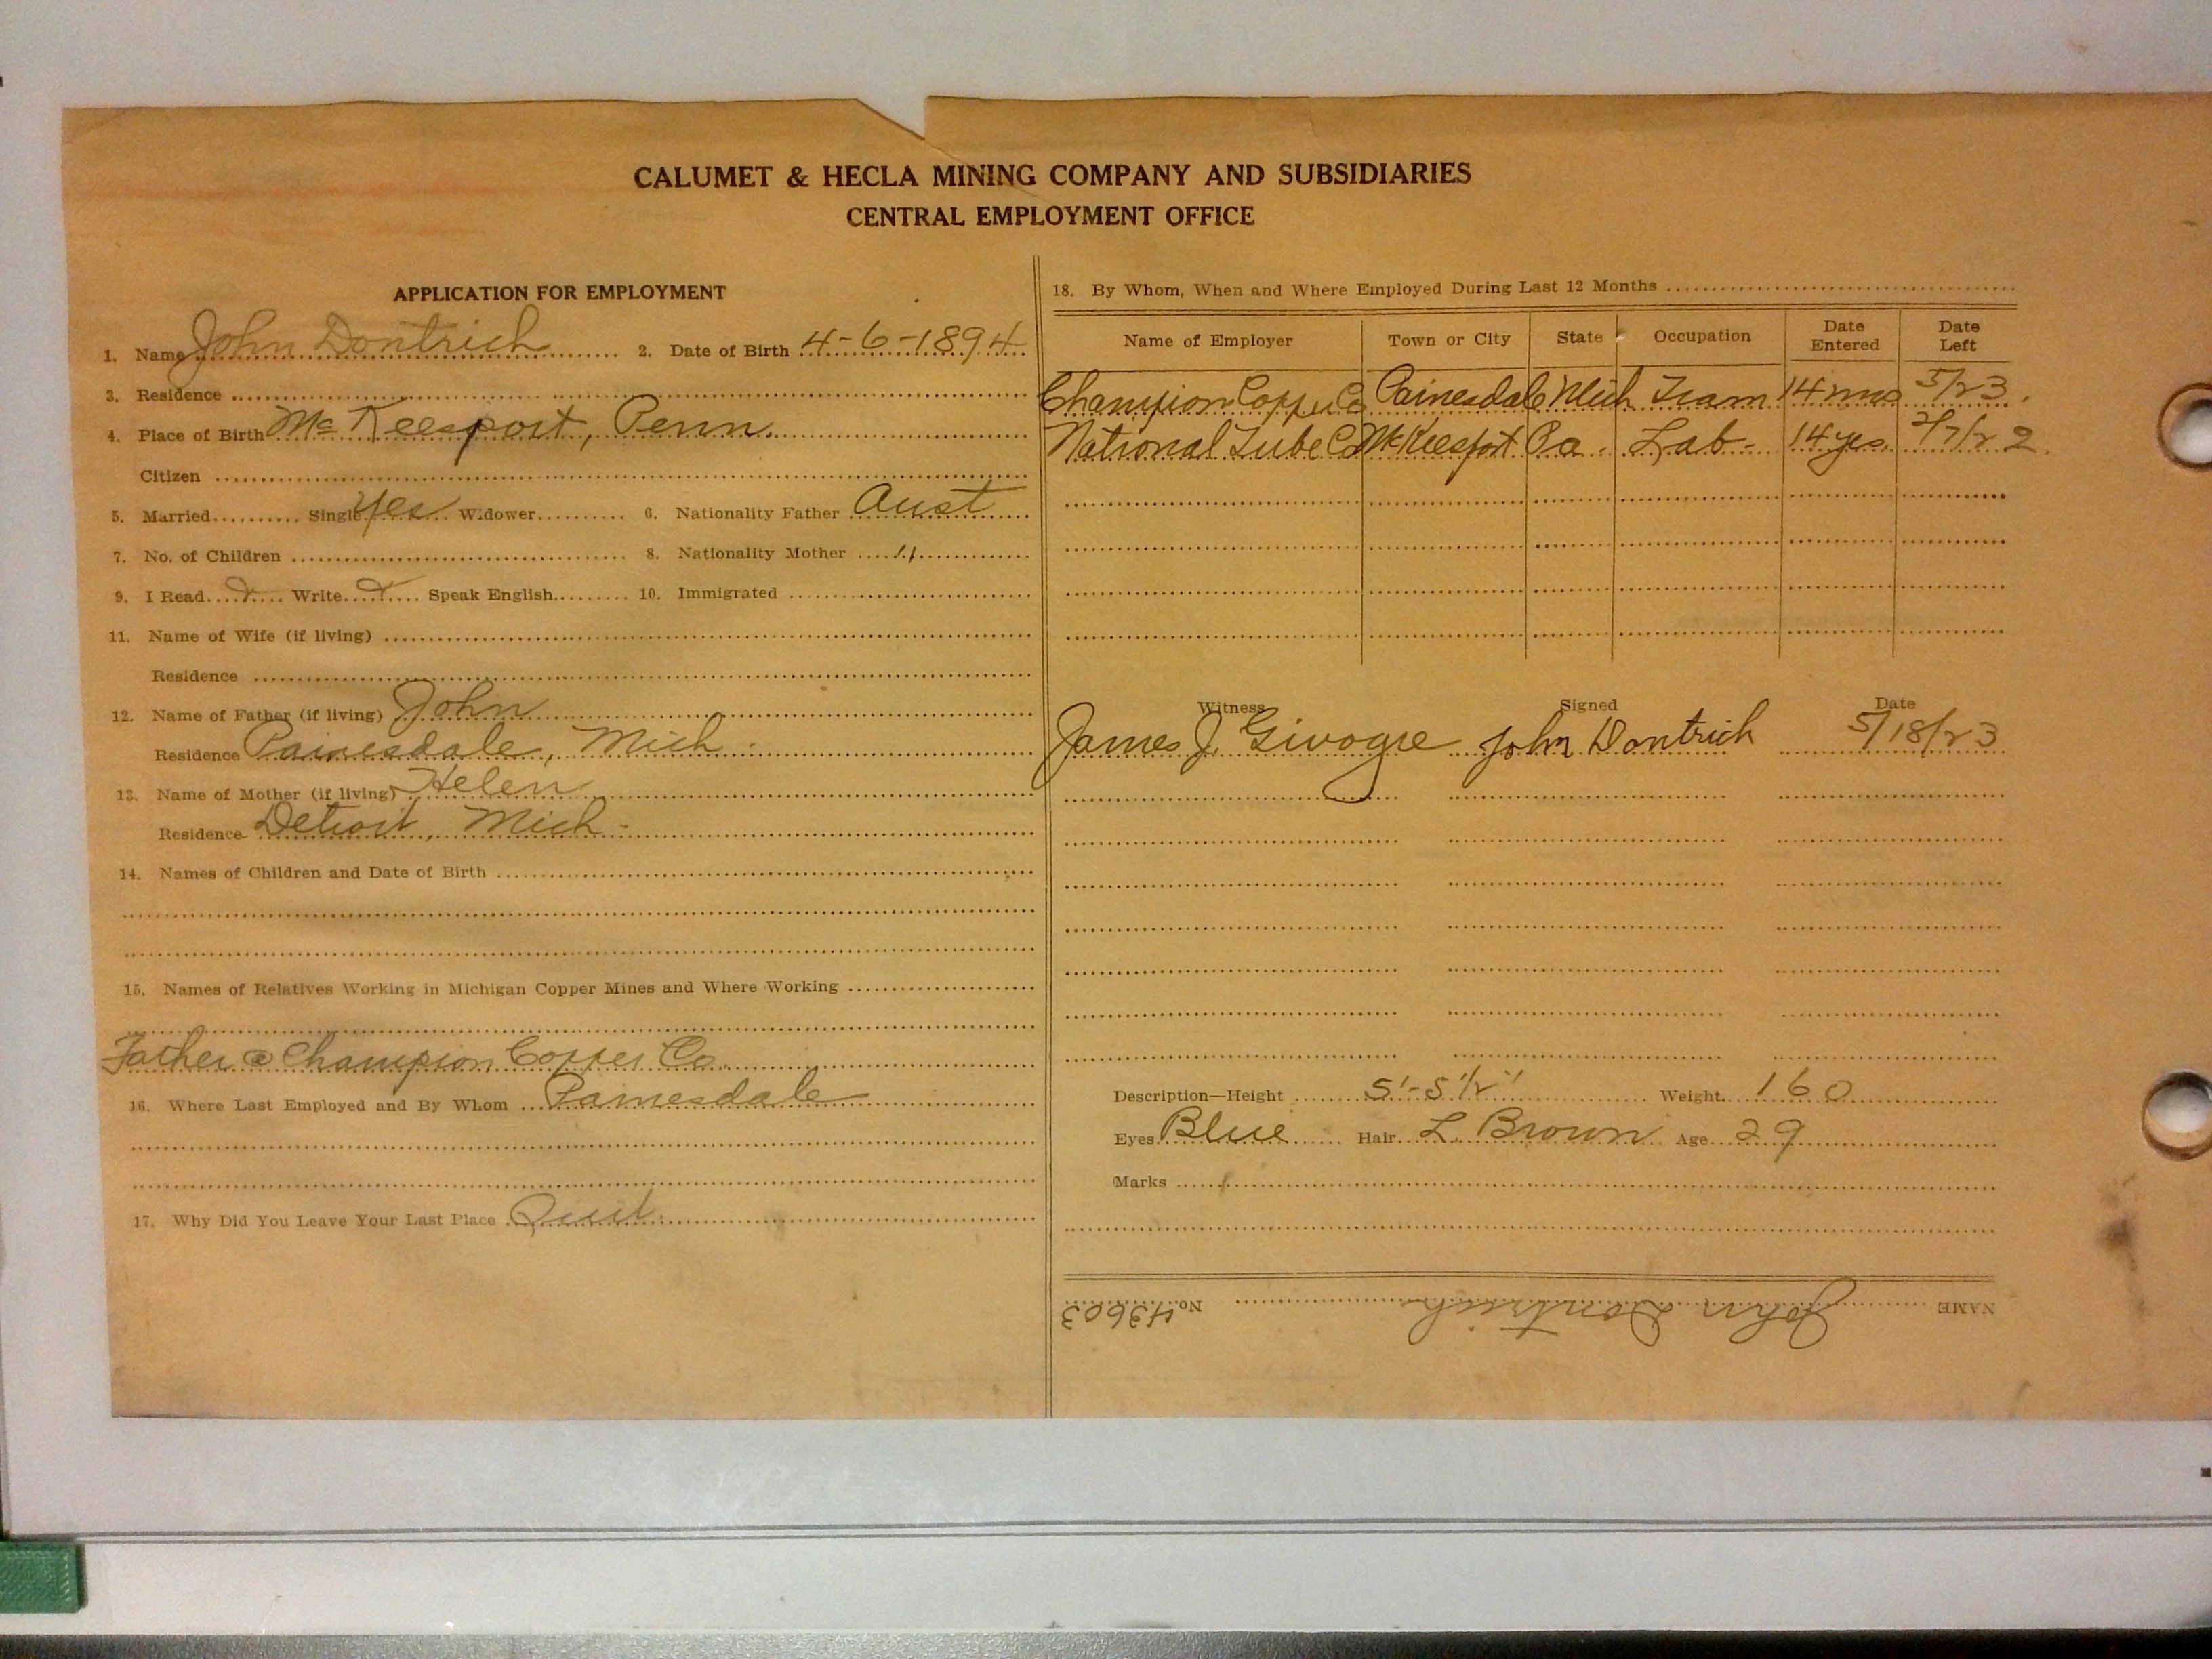 CALUMET & HECLA MINING COMPANY AND SUBSIDIARIES
CENTRAL EMPLOYMENT OFFICE
APPLICATION FOR EMPLOYMENT
1. Name John Dontrich 2. Date of Birth 4-6-1894
3. Residence
4. Place of Birth McKeesport, Penn.
Citizen
5. Married Single Yes Widower 6. Nationality Father Aust
7. No. of Children 8. Nationality Mother "
9. I Read Write Speak English 10. Immigrated
11. Name of Wife (if living)
Residence
12. Name of Father (if living) John
Residence Painesdale, Mich.
13. Name of Mother (if living) Helen
Residence Detroit, Mich.
14. Names of Children and Date of Birth
15. Names of Relatives Working in Michigan Copper Mines and Where Working
Father @ Champion Copper Co.
16. Where Last Employed and By Whom Painesdale
17. Why Did You Leave Your Last Place Quit
18. By Whom, When and Where Employed During Last 12 Months
Name of Employer Town or City State Occupation Date Entered Date Left
Champion Copper Co Painesdale Mich Tram 14 mos 5/23.
National Tube Co McKeesport Pa. Lab- 14 yrs. 2/7/22.
Witness Signed Date
James J. Givogre John Dontrich 5/18/23
Description—Height 5'-5 1/2" Weight 160
Eyes Blue Hair L. Brown Age 29
Marks
NAME John Dontrich No. 43603